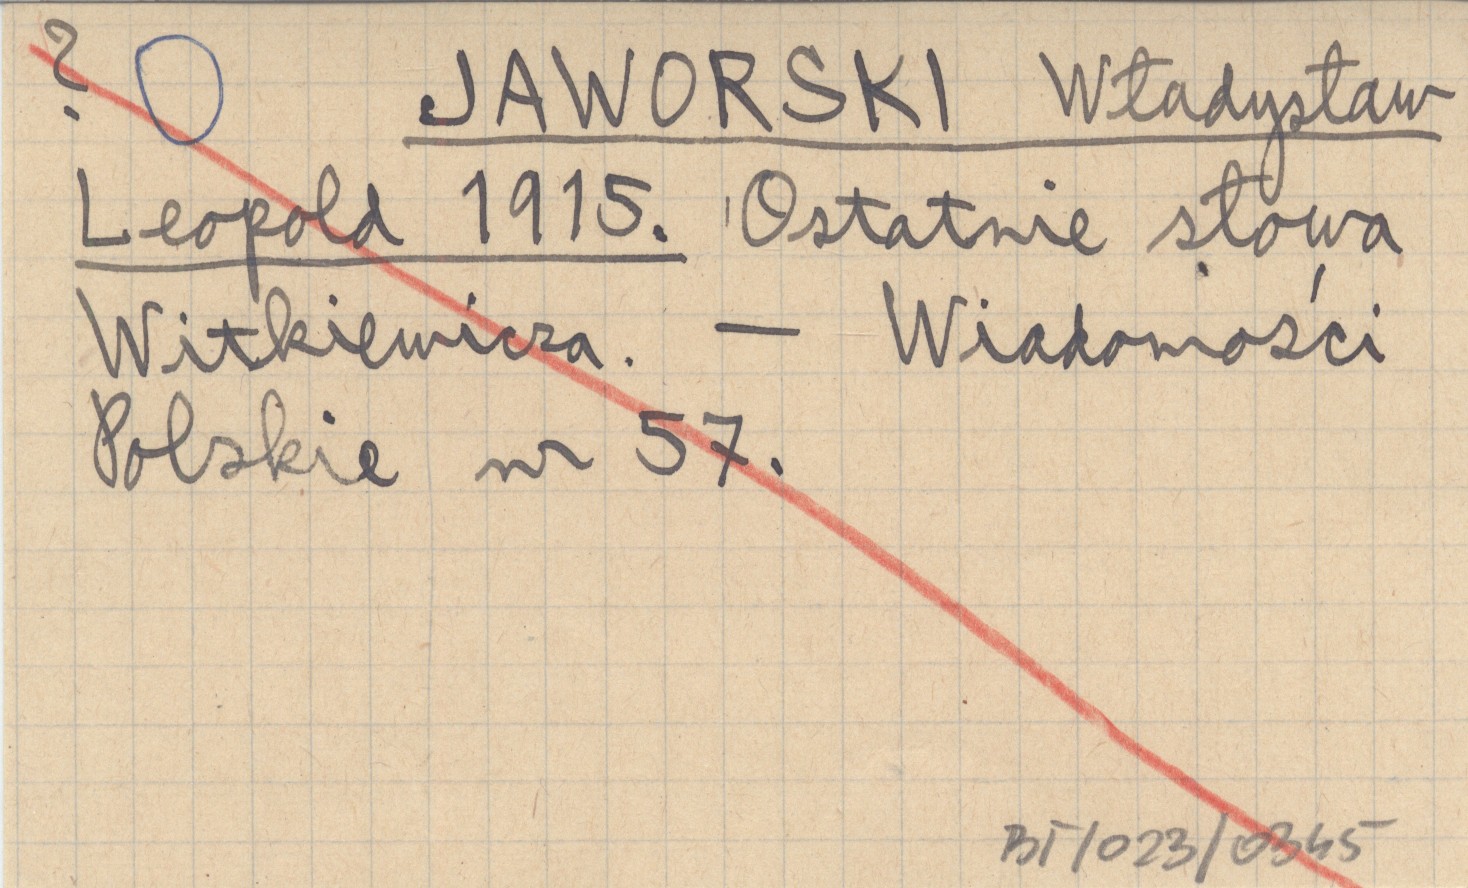 ? JAWORSKI Władysław
Leopold 1915. Ostatnie słowa
Witkiewicza. — Wiadomości
Polskie nr 57.
BT/023/0345